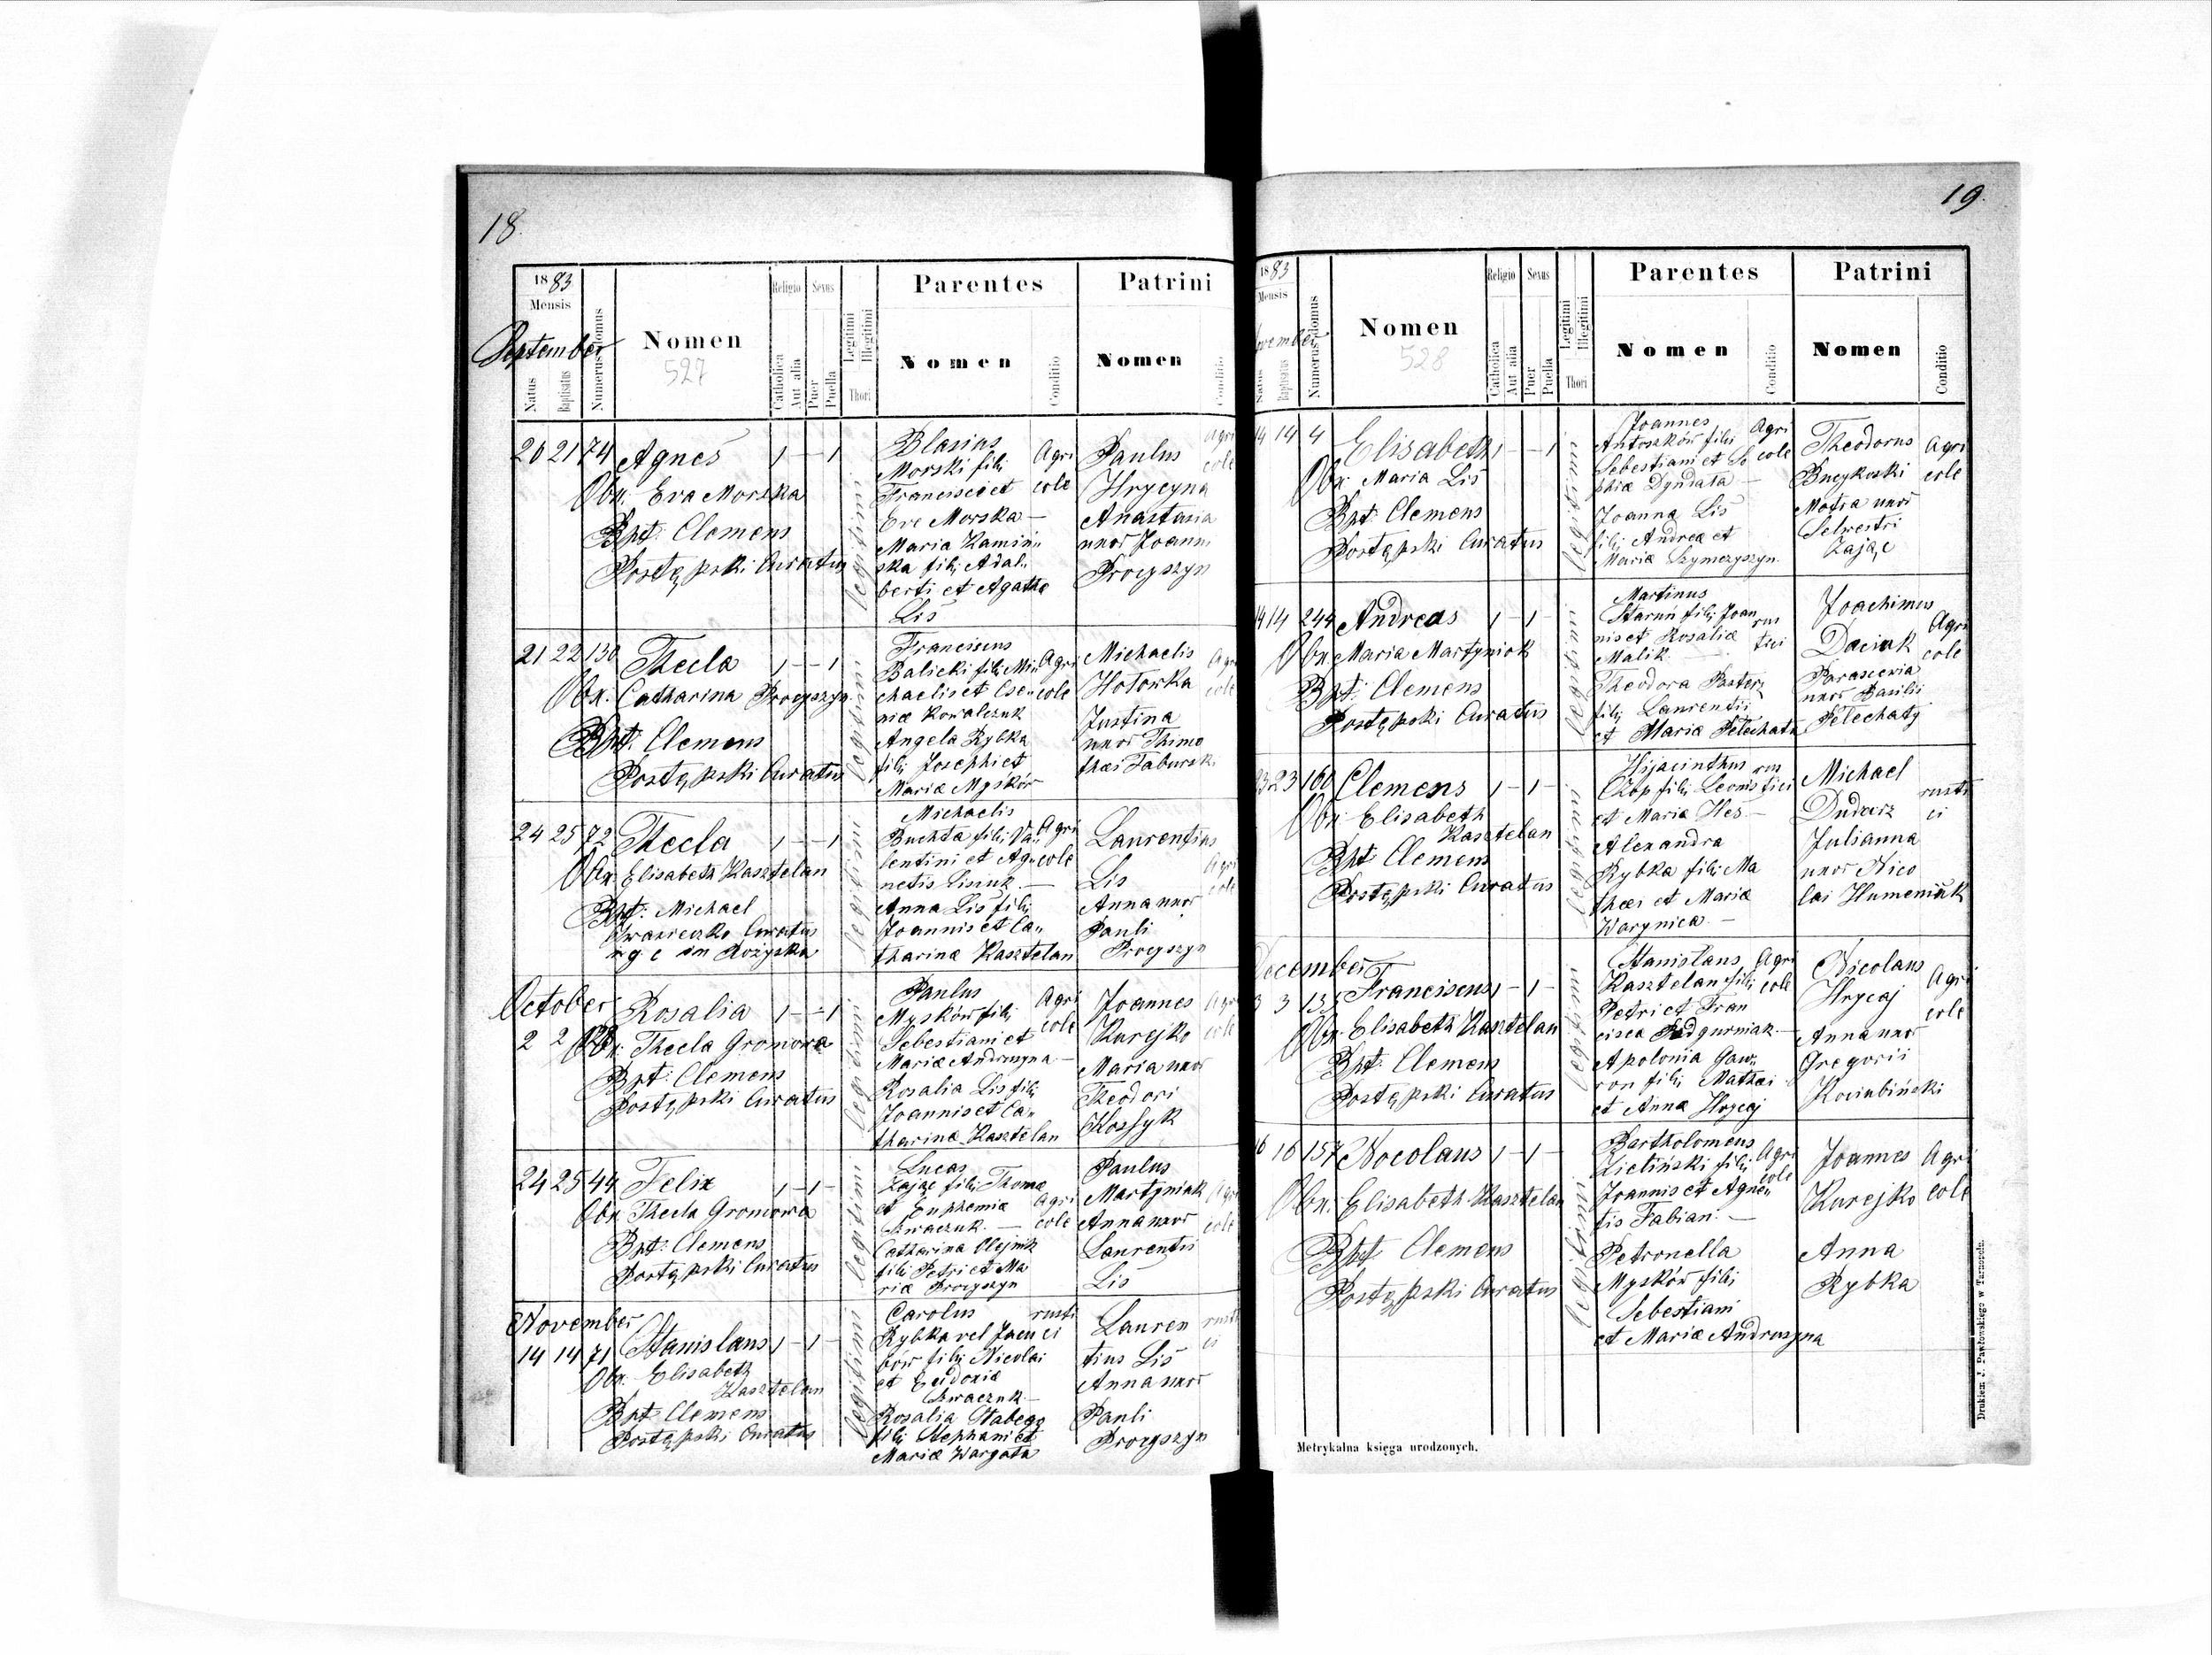 18.
1883
Mensis
September
Natus
Baptisatus
Numerus domus
Nomen
527
Religio
Catholica
Aut alia
Sexus
Puer
Puella
Legitimi
Illegitimi
Thori
Parentes
Nomen
Conditio
Patrini
Nomen
Conditio
20 21 74 Agnes 1 — 1
Obx. Eva Morska
Bpt: Clemens
Postępski Curatus
legitimi
Blasius
Morski filij
Francisci et
Eve Morska —
Maria Kamiń„
ska filij Adal„
berti et Agathæ
Lis
Agri
cole
Paulus
Hrycyna
Anastasia
uxor Joann
Procyszyn
Agri
cole
21 22 130 Thecla 1 — 1
Obx. Catharina Procyszyn
Bpt: Clemens
Postępski Curatus
legitimi
Franciscus
Balicki filij Mi„
chaelis et
Kowalczuk
Angela Rybka
filij Josephi et
Mariæ Myśków
Agri
cole
Michaelis
Hotowka
Justina
uxor Thimo
thæi Taburski
Agri
cole
24 25 72 Thecla 1 — 1
Obx. Elisabeth Kasztelan
Bpt: Michael
Curatus
r. g. c. in Rożyska
legitimi
Michaelis
Buchta filij Va„
lentini et Ag„
netis Lisiuk —
Anna Lis filij
Joannis et Ca„
tharinæ Kasztelan
Agri
cole
Laurentius
Lis
Anna uxor
Pauli
Procyszyn
Agri
cole
October
2 2 Rosalia 1 — 1
Obx. Thecla Gromowa
Bpt: Clemens
Postępski Curatus
legitimi
Paulus
Myśków filij
Sebestiani et
Mariæ Andruszyna —
Rosalia Lis filij
Joannis et Ca„
tharinæ Kasztelan
Agri
cole
Joannes
Kurejko
Maria uxor
Theodori
Kossyk
Agri
cole
24 25 44 Felix 1 — 1 —
Obx Thecla Gromowa
Bpt: Clemens
Postępski Curatus
legitimi
Lucas
Zając filij Thomæ
et Euphemiæ
Szwaczuk. —
Catharina Olejnik
filij Petri et Ma
riæ Procyszyn
Agri
cole
Paulus
Martyniak
Anna uxor
Laurentii
Lis
Agri
cole
November
14 14 71 Stanislaus 1 — 1 —
Obx. Elisabeth
Kasztelan
Bpt Clemens
Postępski Curatus
legitimi
Carolus
Rybka vel Jacu
bów filij Nicolai
et Eudoxiæ
Szwaczuk —
Rosalia Stabego
filij Stephani et
Mariæ Wargata
rusti
ci
Lauren
tius Lis
Anna uxor
Pauli
Procyszyn
rusti
ci
19.
1883
Mensis
November
Natus
Baptisatus
Numerus domus
Nomen
528
Religio
Catholica
Aut alia
Sexus
Puer
Puella
Legitimi
Illegitimi
Thori
Parentes
Nomen
Conditio
Patrini
Nomen
Conditio
14 14 4 Elisabeth 1 — 1
Obx Maria Lis
Bpt: Clemens
Postępski Curatus
legitimi
Joannes
Antoszków filij
Sebestiani et So
phiæ Dyndata —
Joanna Lis
filij Andreæ et
Mariæ Szymczyszyn
Agri
cole
Theodorus
Motra uxor
Selwestri
Zając
Agri
cole
14 14 244 Andreas 1 — 1 —
Obx. Maria Martyniok
Bpt: Clemens
Postępski Curatus
legitimi
Martinus
Staruń filij Joan
nis et Rosaliæ
Malik —
Theodora
filij Laurentii
et Mariæ Pelechata
rus
tici
Joachimus
Daciuk
Parascevia
uxor Basilii
Pelechaty
Agri
cole
23 23 160 Clemens 1 — 1 —
Obx Elisabeth
Kasztelan
Bpt Clemens
Postępski Curatus
legitimi
Hijacinthus
Czop filij Leonis
et Maria Hes —
Alexandra
Rybka filij Ma
thæi et Mariæ
Warynica —
rus
tici
Michael
Dudarz
Julianna
uxor Nico
lai Humeniuk
rusti
ci
December
3 3 Franciscus 1 — 1 —
Obx. Elisabeth Kasztelan
Bpt: Clemens
Postępski Curatus
legitimi
Stanislaus
Kasztelan filij
Petri et Fran
cisca Podgurniak —
Apolonia Gaw„
ron filij Mathæi
et Anna Hrycaj
Agri
cole
Nicolaus
Hrycaj
Anna uxor
Gregorii
Kociubiński
Agri
cole
16 16 157 Nocolaus 1 — 1 —
Obx: Elisabeth Kasztelan
Bpt Clemens
Postępski Curatus
legitimi
Bartholomeus
Zieliński filij
Joannis et Agne„
tis Fabian. —
Petronella
Myśków filij
Sebestiani
et Mariæ Andruszyna
Agri
cole
Joannes
Kurejko
Anna
Rybka
Agri
cole
Metrykalna księga urodzonych.
Drukiem J. Pawłowskiego w Tarnopolu.